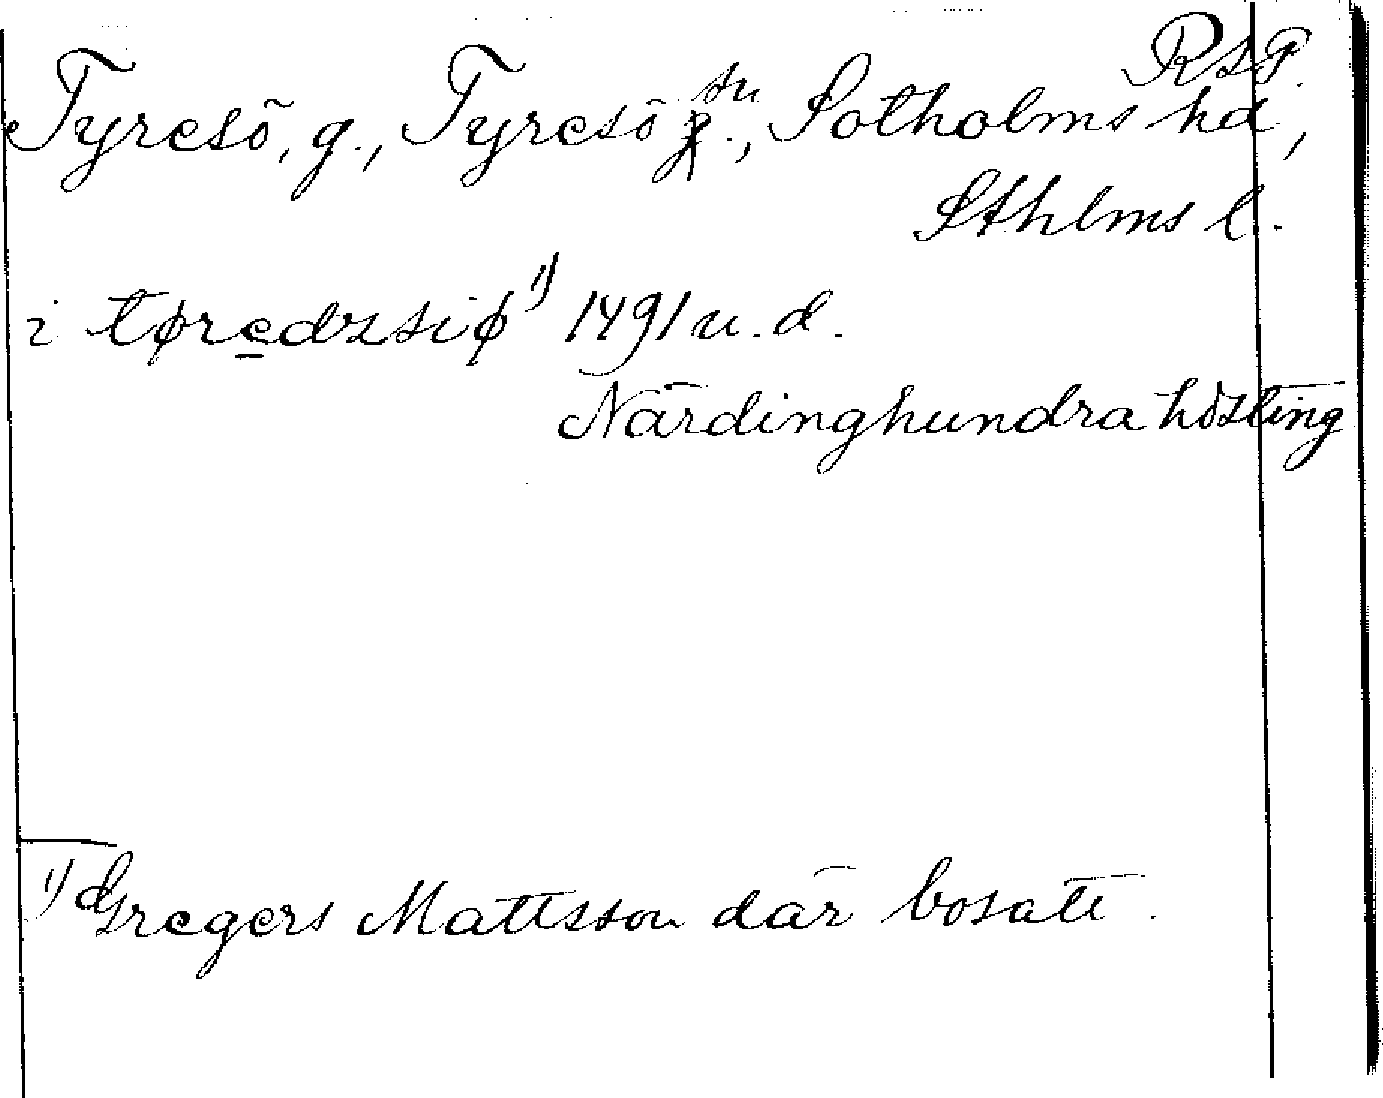 RSP.
Tyresö, g., Tyresö sn., Sotholms hd,
Sthlms l.
i tørędzsiø ¹⁾ 1491 u. d.
Närdinghundra hösting
¹⁾ Gregers Mattsson där bosatt.